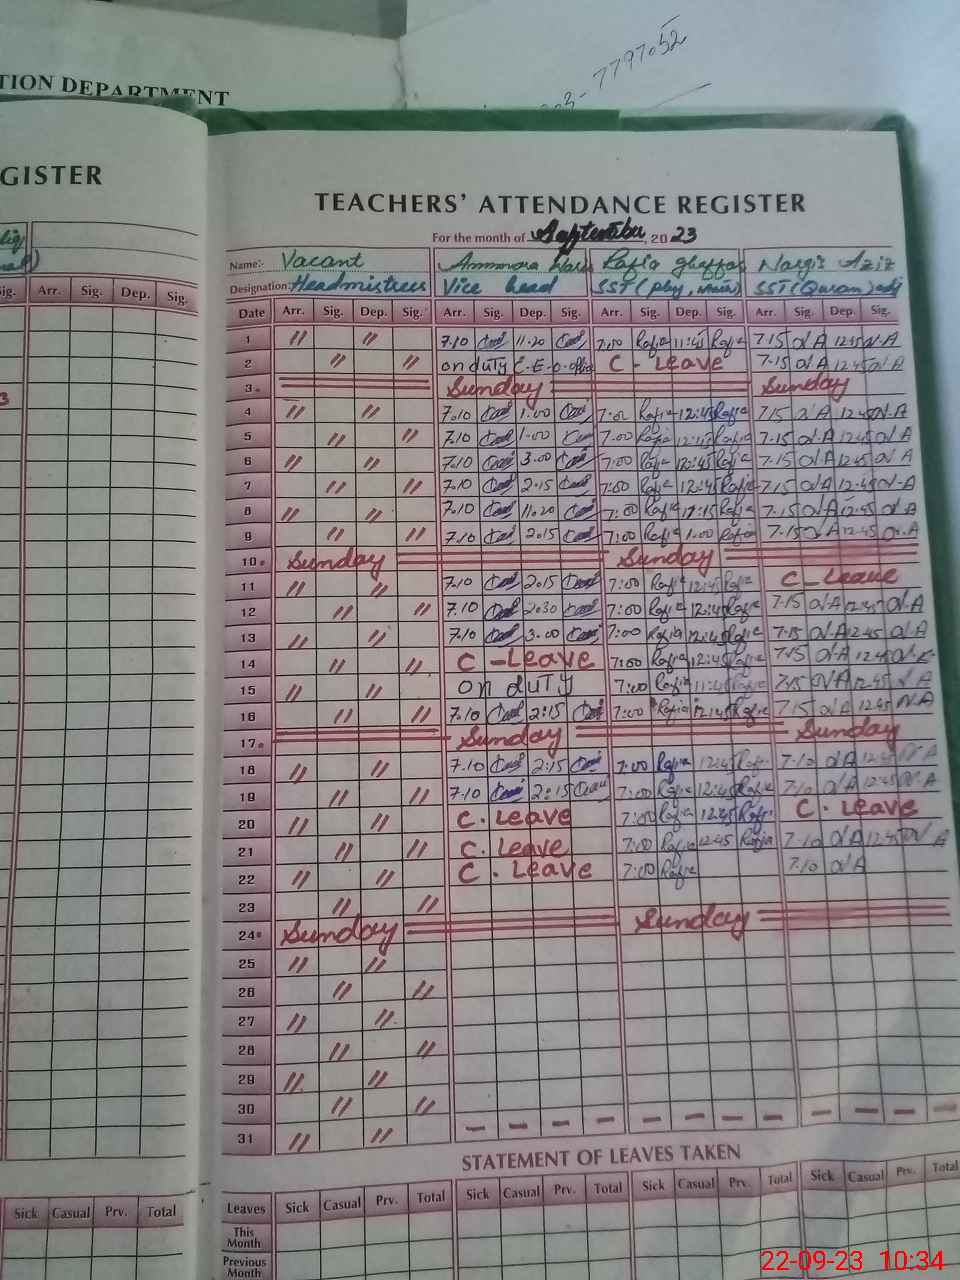 TION DEPARTMENT
7797052
GISTER
TEACHERS' ATTENDANCE REGISTER
For the month of September, 2023
Name:- Vacant Rafia Ghaffar Nargis Aziz
Designation:- Headmistress Vice head SST(phy, SST(Quran)
Sig. Arr. Sig. Dep. Sig. Date Arr. Sig. Dep. Sig. Arr. Sig. Dep. Sig. Arr. Sig. Dep. Sig. Arr. Sig. Dep. Sig.
1 〃 〃 7.10 11.20 7:00 Rafia 11:45 Rafia 7.15 N.A 12.45 N.A
2 〃 〃 on duty C.E.O. office C - Leave 7.15 N.A 12.45 N.A
3. Sunday Sunday
4 〃 〃 7.10 1.00 7:00 Rafia 12:45 Rafia 7.15 N.A 12.45 N.A
5 〃 〃 7.10 1.00 7:00 Rafia 12:45 Rafia 7.15 N.A 12.45 N.A
6 〃 〃 7.10 3.00 7:00 Rafia 12:45 Rafia 7.15 N.A 12.45 N.A
7 〃 〃 7.10 2.15 7:00 Rafia 12:45 Rafia 7.15 N.A 12.45 N.A
8 〃 〃 7.10 11.20 7:00 Rafia 12:15 Rafia 7.15 N.A 12.45 N.A
9 〃 〃 7.10 2.15 7:00 Rafia 1.00 Rafia 7.15 N.A 12.45 N.A
10. Sunday Sunday
11 〃 〃 7.10 2.15 7:00 Rafia 12:45 Rafia C - Leave
12 〃 〃 7.10 2.30 7:00 Rafia 12:45 Rafia 7.15 N.A 12.45 N.A
13 〃 〃 7.10 3.00 7:00 Rafia 12:45 Rafia 7.15 N.A 12.45 N.A
14 〃 〃 C - Leave 7:00 Rafia 12:45 Rafia 7.15 N.A 12.45
15 〃 〃 on duty 7:00 Rafia 11:45 Rafia 7.15 N.A 12.45 N.A
16 〃 〃 7.10 2:15 7:00 Rafia 12:45 Rafia 7.15 N.A 12.45 N.A
17. Sunday Sunday
18 〃 〃 7.10 2:15 7:00 Rafia 12:45 Rafia 7.10 N.A 12.45 N.A
19 〃 〃 7.10 2:15 7:00 Rafia 12:45 Rafia 7.10 N.A 12.45 N.A
20 〃 〃 C. Leave 7:00 Rafia 12:45 Rafia C. Leave
21 〃 〃 C. Leave 7:00 Rafia 12:45 Rafia 7.10 N.A 12.45 N.A
22 〃 〃 C. Leave 7:00 Rafia 7.10 N.A
23 〃 〃
24. Sunday Sunday
25 〃 〃
26 〃 〃
27 〃 〃
28 〃 〃
29 〃 〃
30 〃 〃
31 〃 〃 — — — — — — — — — — — —
STATEMENT OF LEAVES TAKEN
Sick Casual Prv. Total Leaves Sick Casual Prv. Total Sick Casual Prv. Total Sick Casual Prv. Total Sick Casual Prv. Total
This Month
Previous Month
22-09-23 10:34